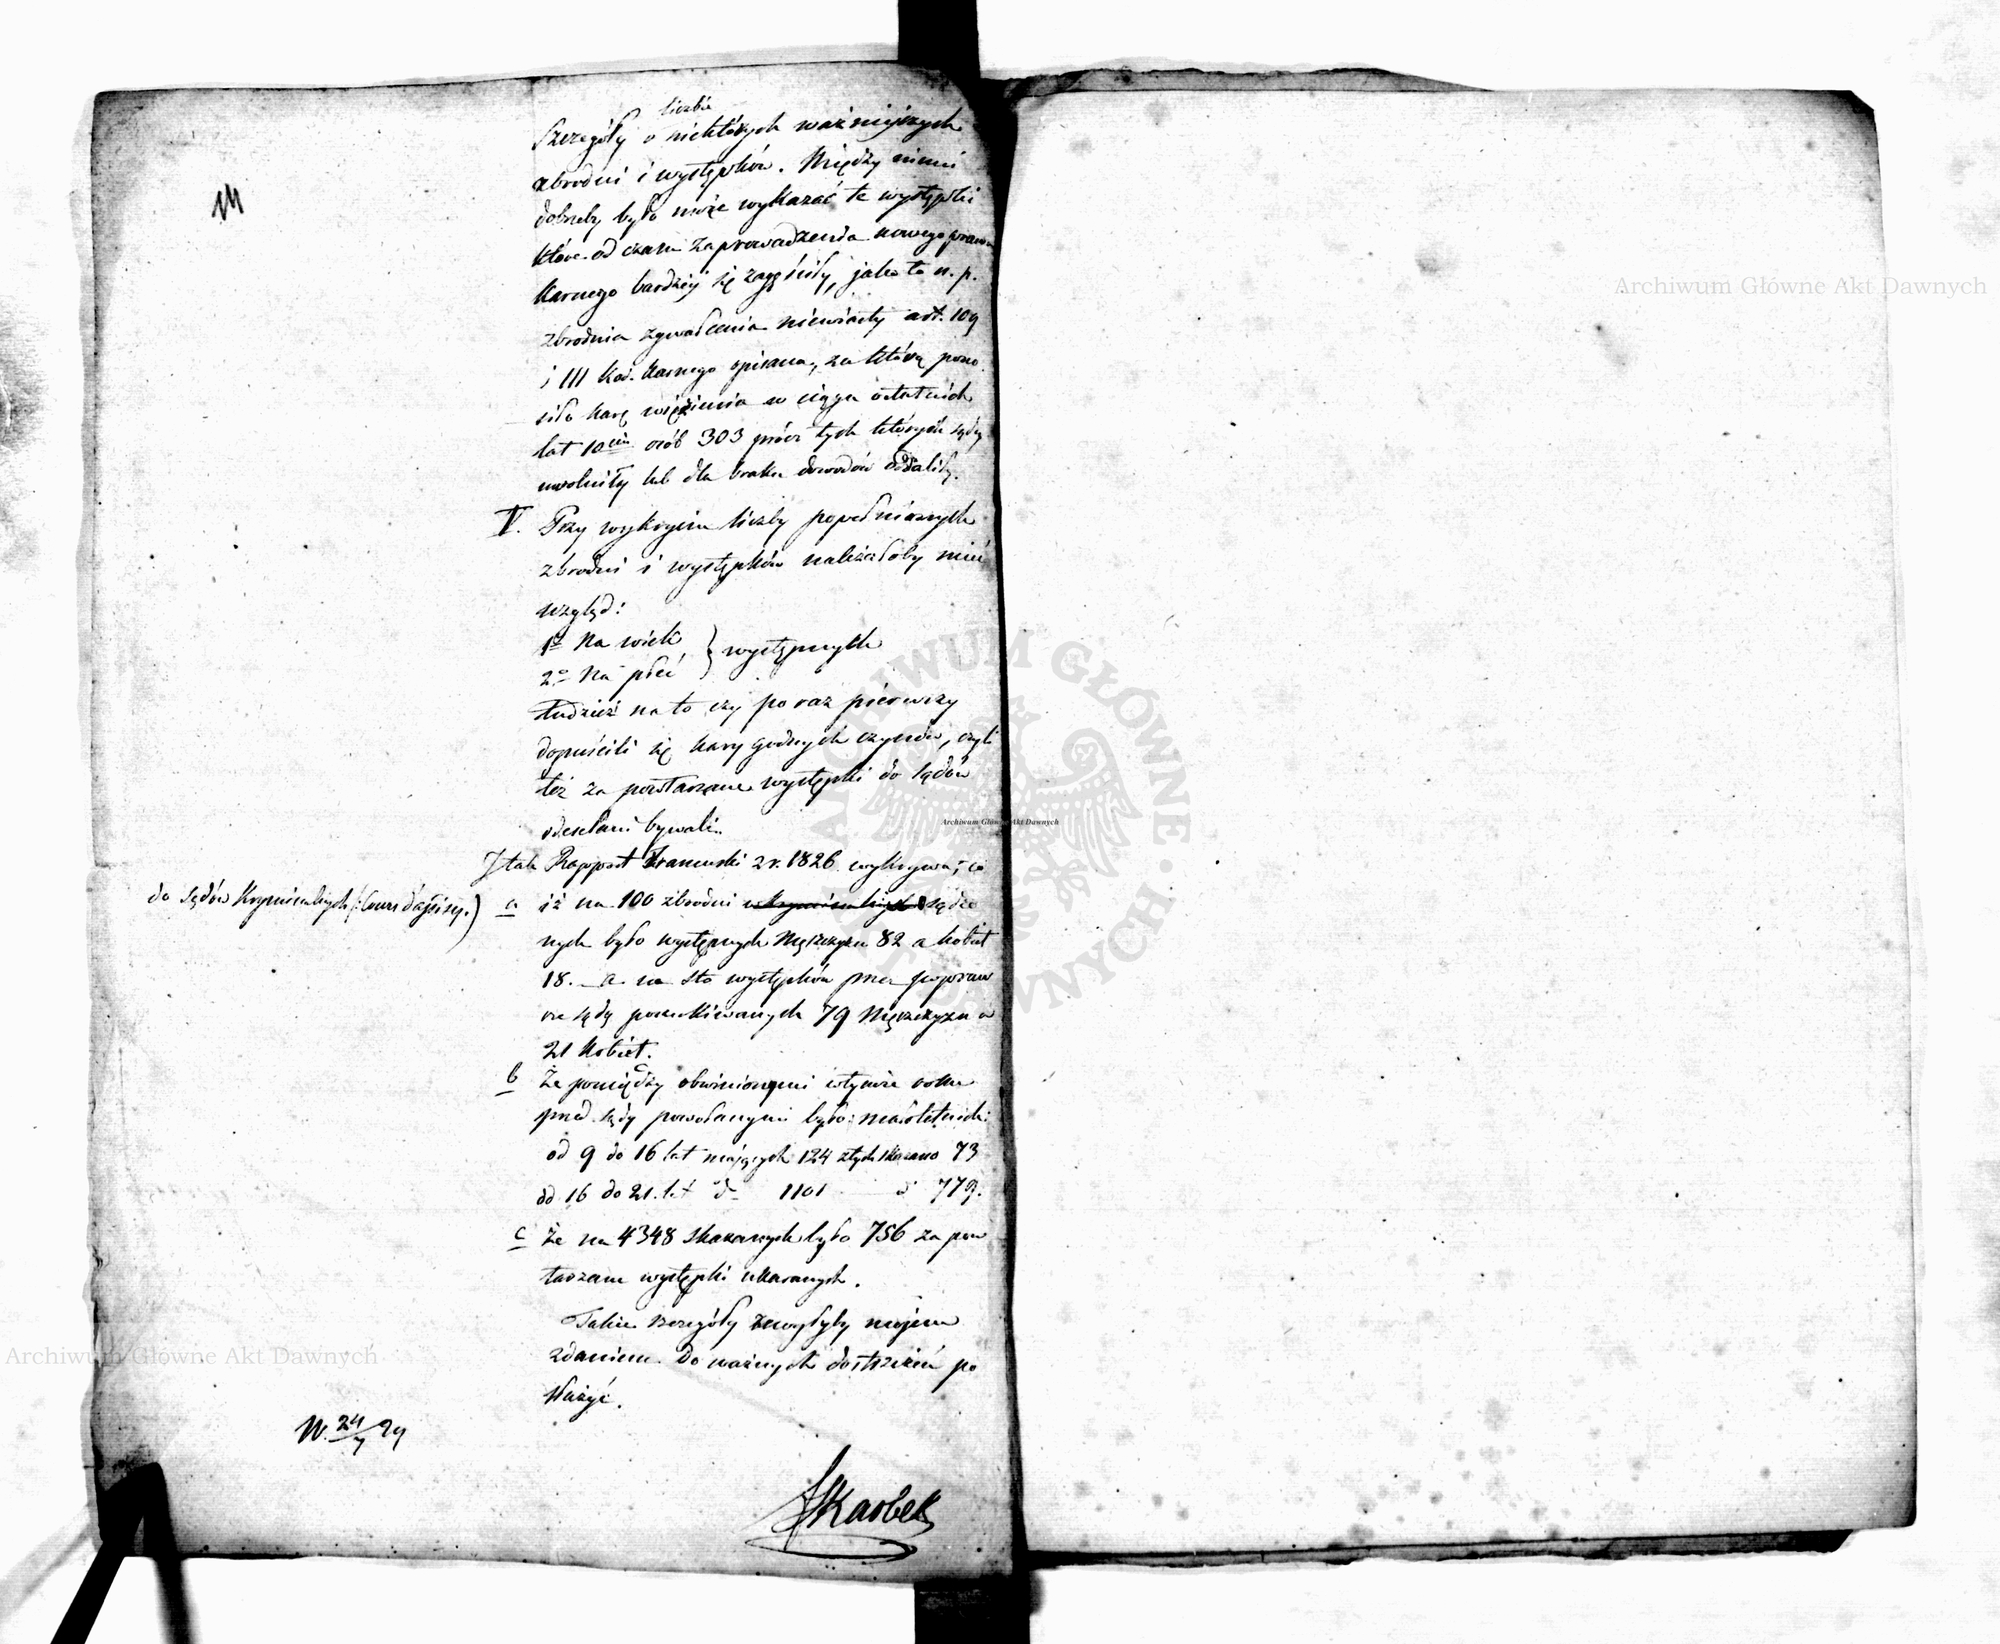 liczbie
Szczegóły o niektórych ważniejszych
zbrodni i występków. Między niemi
dobrzeby było może wykazać te występki
które od czasu zaprowadzenia nowego prawa
karnego bardziej się zagęściły, jako to n. p.
zbrodnia zgwałcenia niewiasty art. 109
i 111 kod. karnego opisana, za którą pono
siło karę więzienia w ciągu ostatnich
lat 10ciu osób 303 prócz tych których sądy
uwolniły lub dla braku dowodów oddaliły.
V. Przy wykryciu liczby popełnionych
zbrodni i występków należałoby mieć
wzgląd:
1o Na wiek
2o Na płeć } występnych
tudzież na to czy po raz pierwszy
dopuścili się kary godnych czynów, czyli
też za powtarzane występki do sądów
odesłani bywali.
I tak Rapport francuski z r. 1826 wykrywa, co
do sądów kryminalnych (: Cours d'assises.)
a iż na 100 zbrodni sądzo
nych było występnych Mężczyzn 82 a kobiet
18. – a na sto występków przez popraw
cze sądy poszukiwanych 79 Mężczyzn a
21 kobiet.
b Że pomiędzy obwinionymi w tymże roku
przed sądy powołanymi było: małoletnich:
od 9 do 16 lat mających 124 z tych skazano 73
od 16 do 21. lat do 1101 — do 779.
c Że na 4348 skazanych było 756 za pow
tarzane występki ukaranych.
Takie szczegóły zdaniem mojem
do ważnych dostrzeżeń po
służyć.
W. 24/7 29
FSkarbek
Archiwum Główne Akt Dawnych
Archiwum Główne Akt Dawnych
Archiwum Główne Akt Dawnych
ARCHIWUM GŁÓWNE AKT DAWNYCH